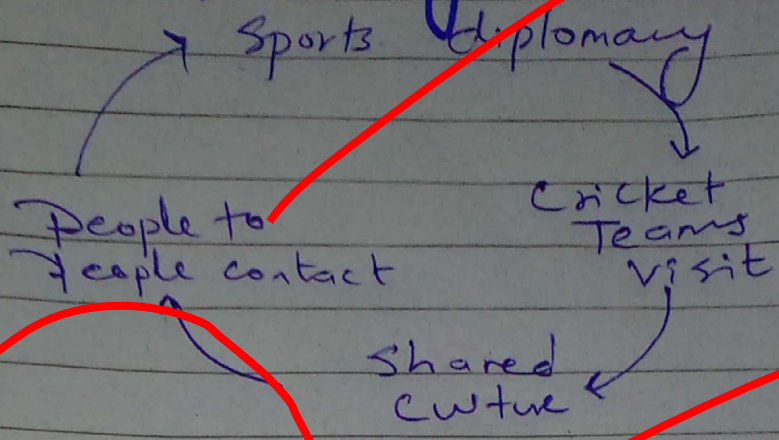 Sports diplomacy
Cricket
Teams
visit
Shared
Culture
People to
People contact